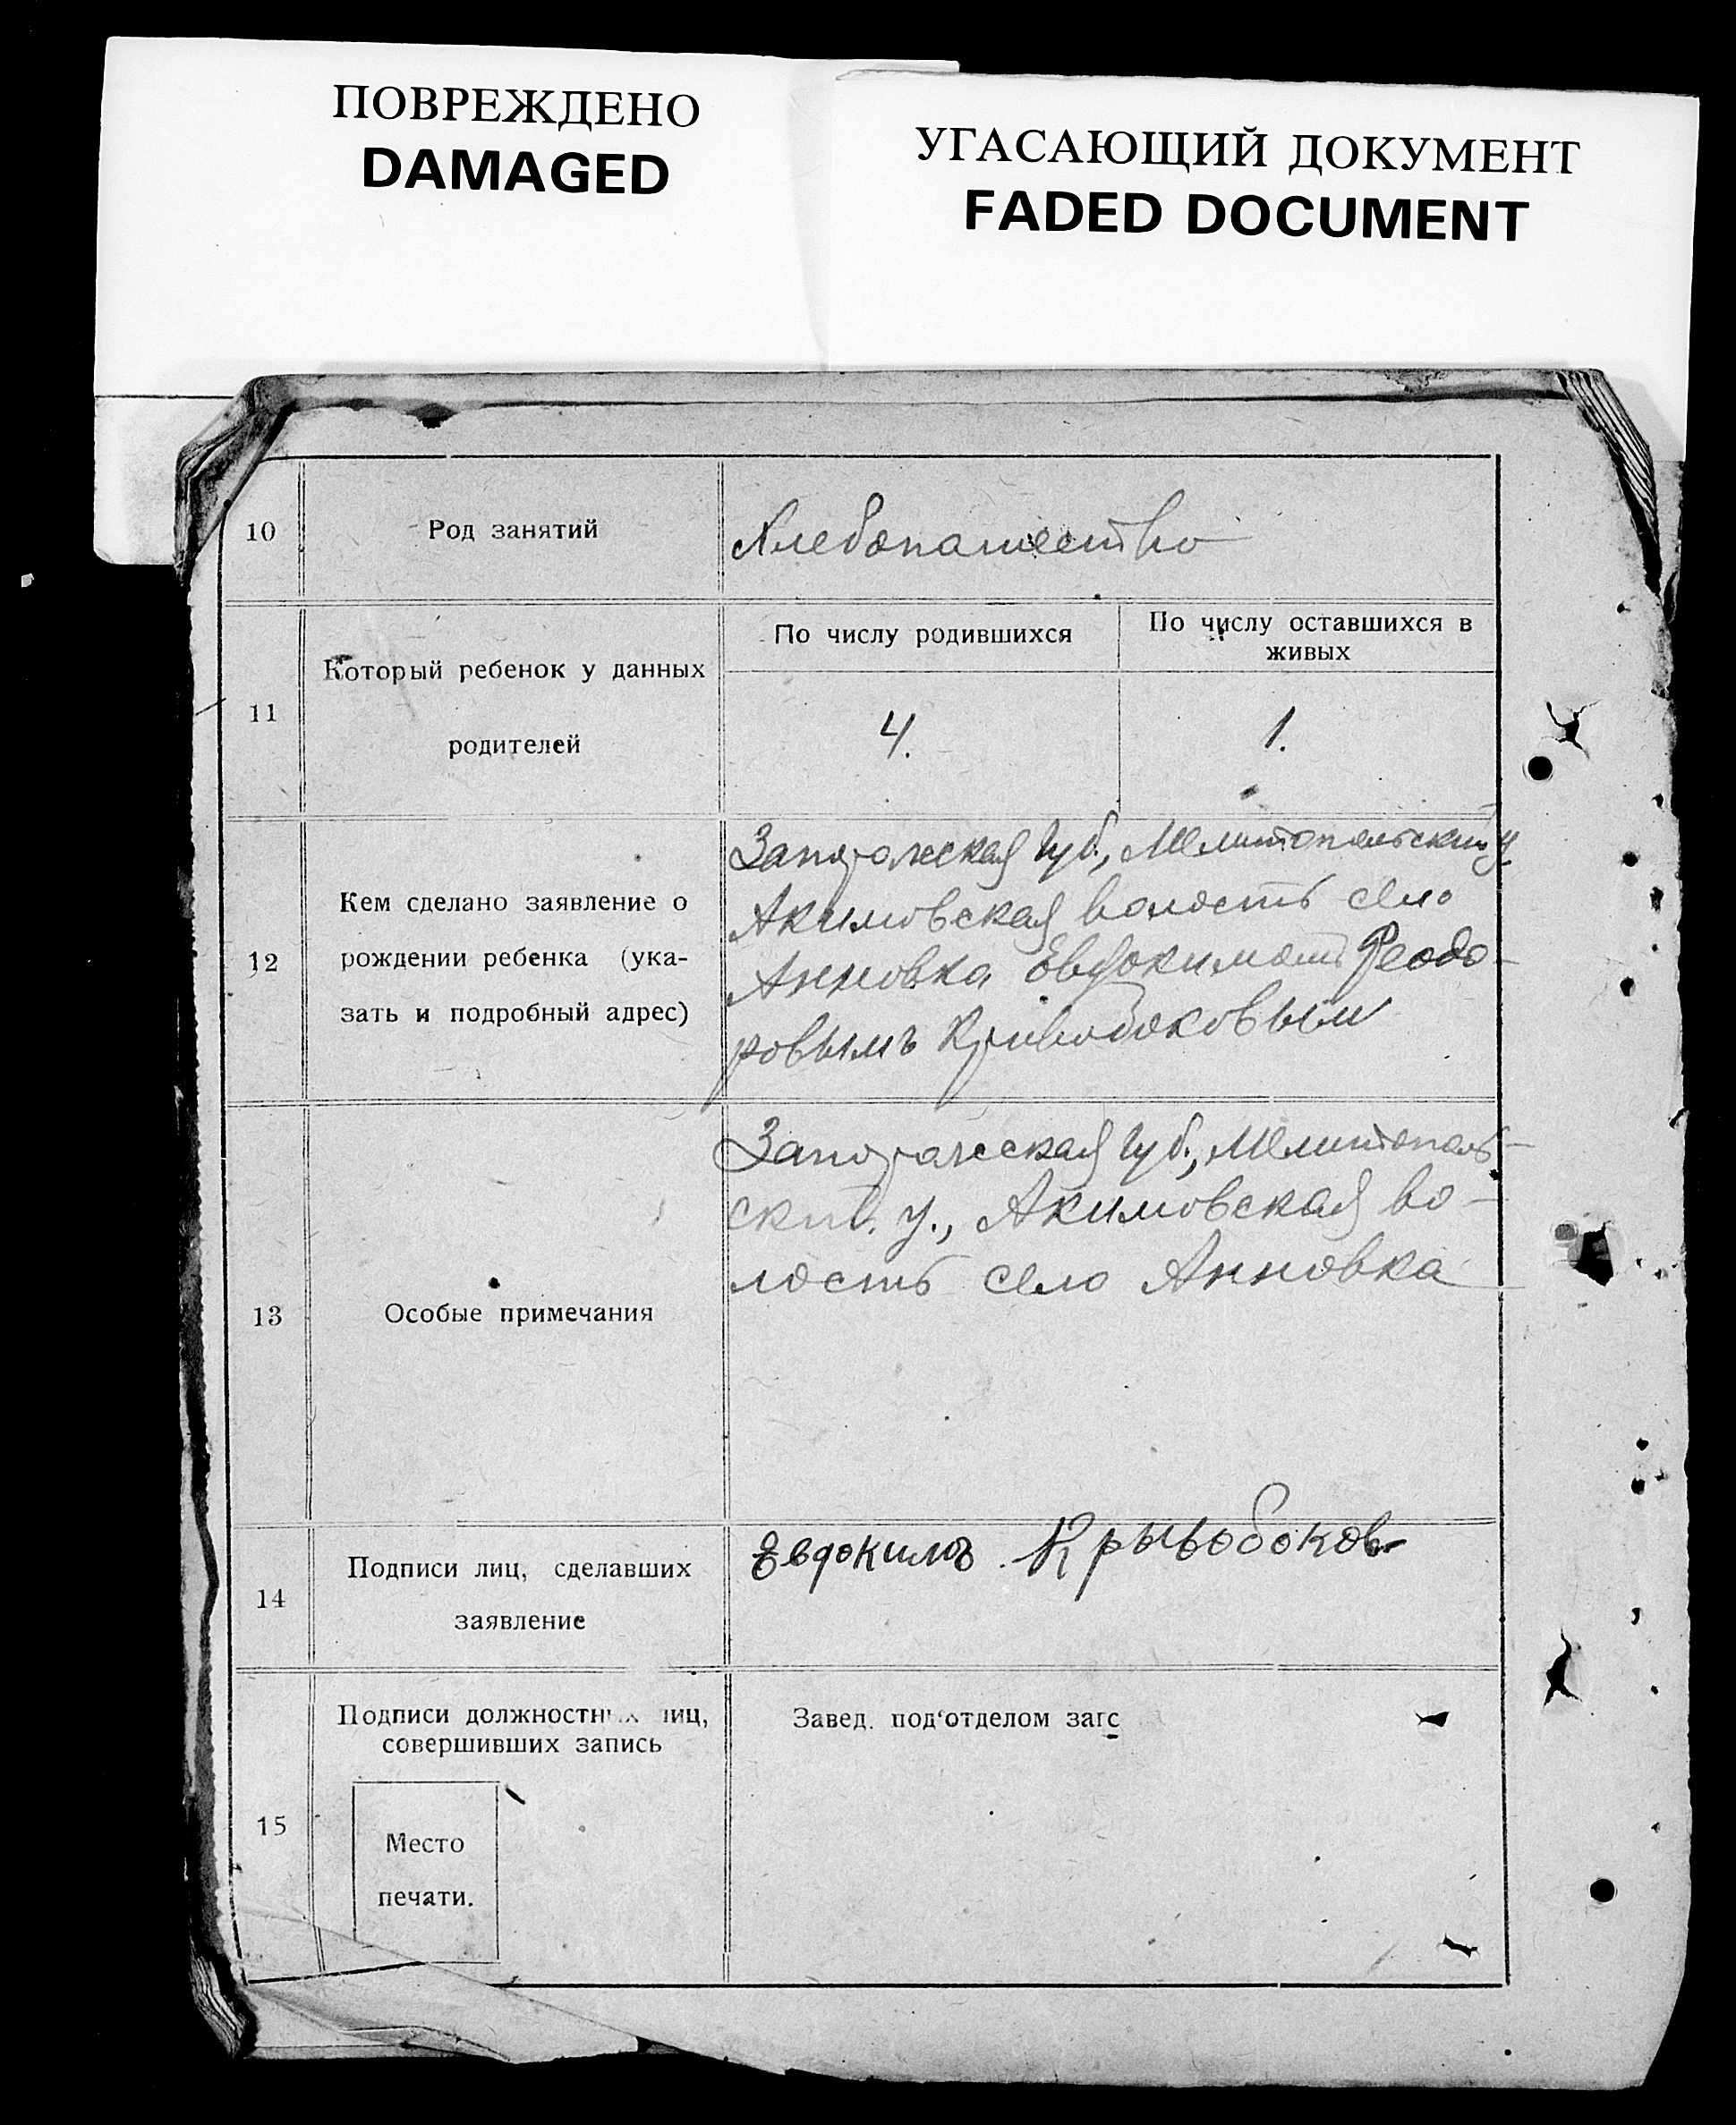 ПОВРЕЖДЕНО
DAMAGED
УГАСАЮЩИЙ ДОКУМЕНТ
FADED DOCUMENT
10
Род занятий
Хлебопашество
11
Который ребенок у данных
родителей
По числу родившихся
По числу оставшихся в
живых
4.
1.
12
Кем сделано заявление о
рождении ребенка (ука-
зать и подробный адрес)
Запорожская губ., Мелитопольский у.
Акимовская волость село
Анновка Евдокимом Феодо-
ровымъ Кривобоковым
13
Особые примечания
Запорожская губ., Мелитополь-
ский у., Акимовская во-
лость село Анновка
14
Подписи лиц, сделавших
заявление
Евдокимъ Крывобоков
15
Подписи должностных лиц,
совершивших запись
Место
печати.
Завед. под‘отделом загс